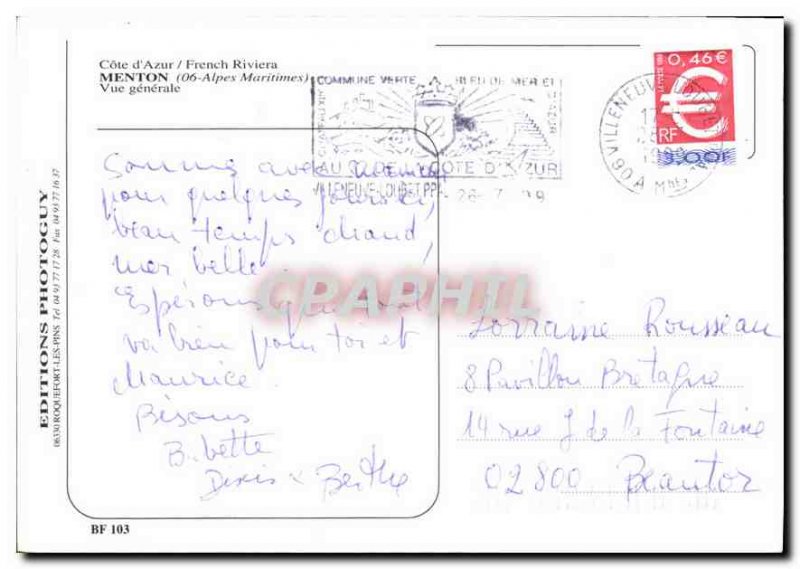 Côte d'Azur / French Riviera
MENTON (06-Alpes Maritimes)
Vue générale
COMMUNE VERTE
BLEU DE MER ET
AU COEUR CÔTE D'AZUR
VILLENEUVE-LOUBET PPAL
26-7-99
0,46€
LA POSTE 1999
RF
3,00F
VILLENEUVE LOUBET
17
26-7
1999
06 A Mmes
Somme avec
pour quelques jours ici,
beau temps chaud,
mer belle
Espérons que tout
va bien pour toi et
Maurice.
Bisous
Babette
Denis & Berthe
Lorraine Rousseau
8 Pavillon Bretagne
14 rue J de la Fontaine
02800 Beautor
EDITIONS PHOTOGUY
06330 ROQUEFORT-LES-PINS Tel 04 93 77 17 28 Fax 04 93 77 16 37
CPAPHIL
BF 103